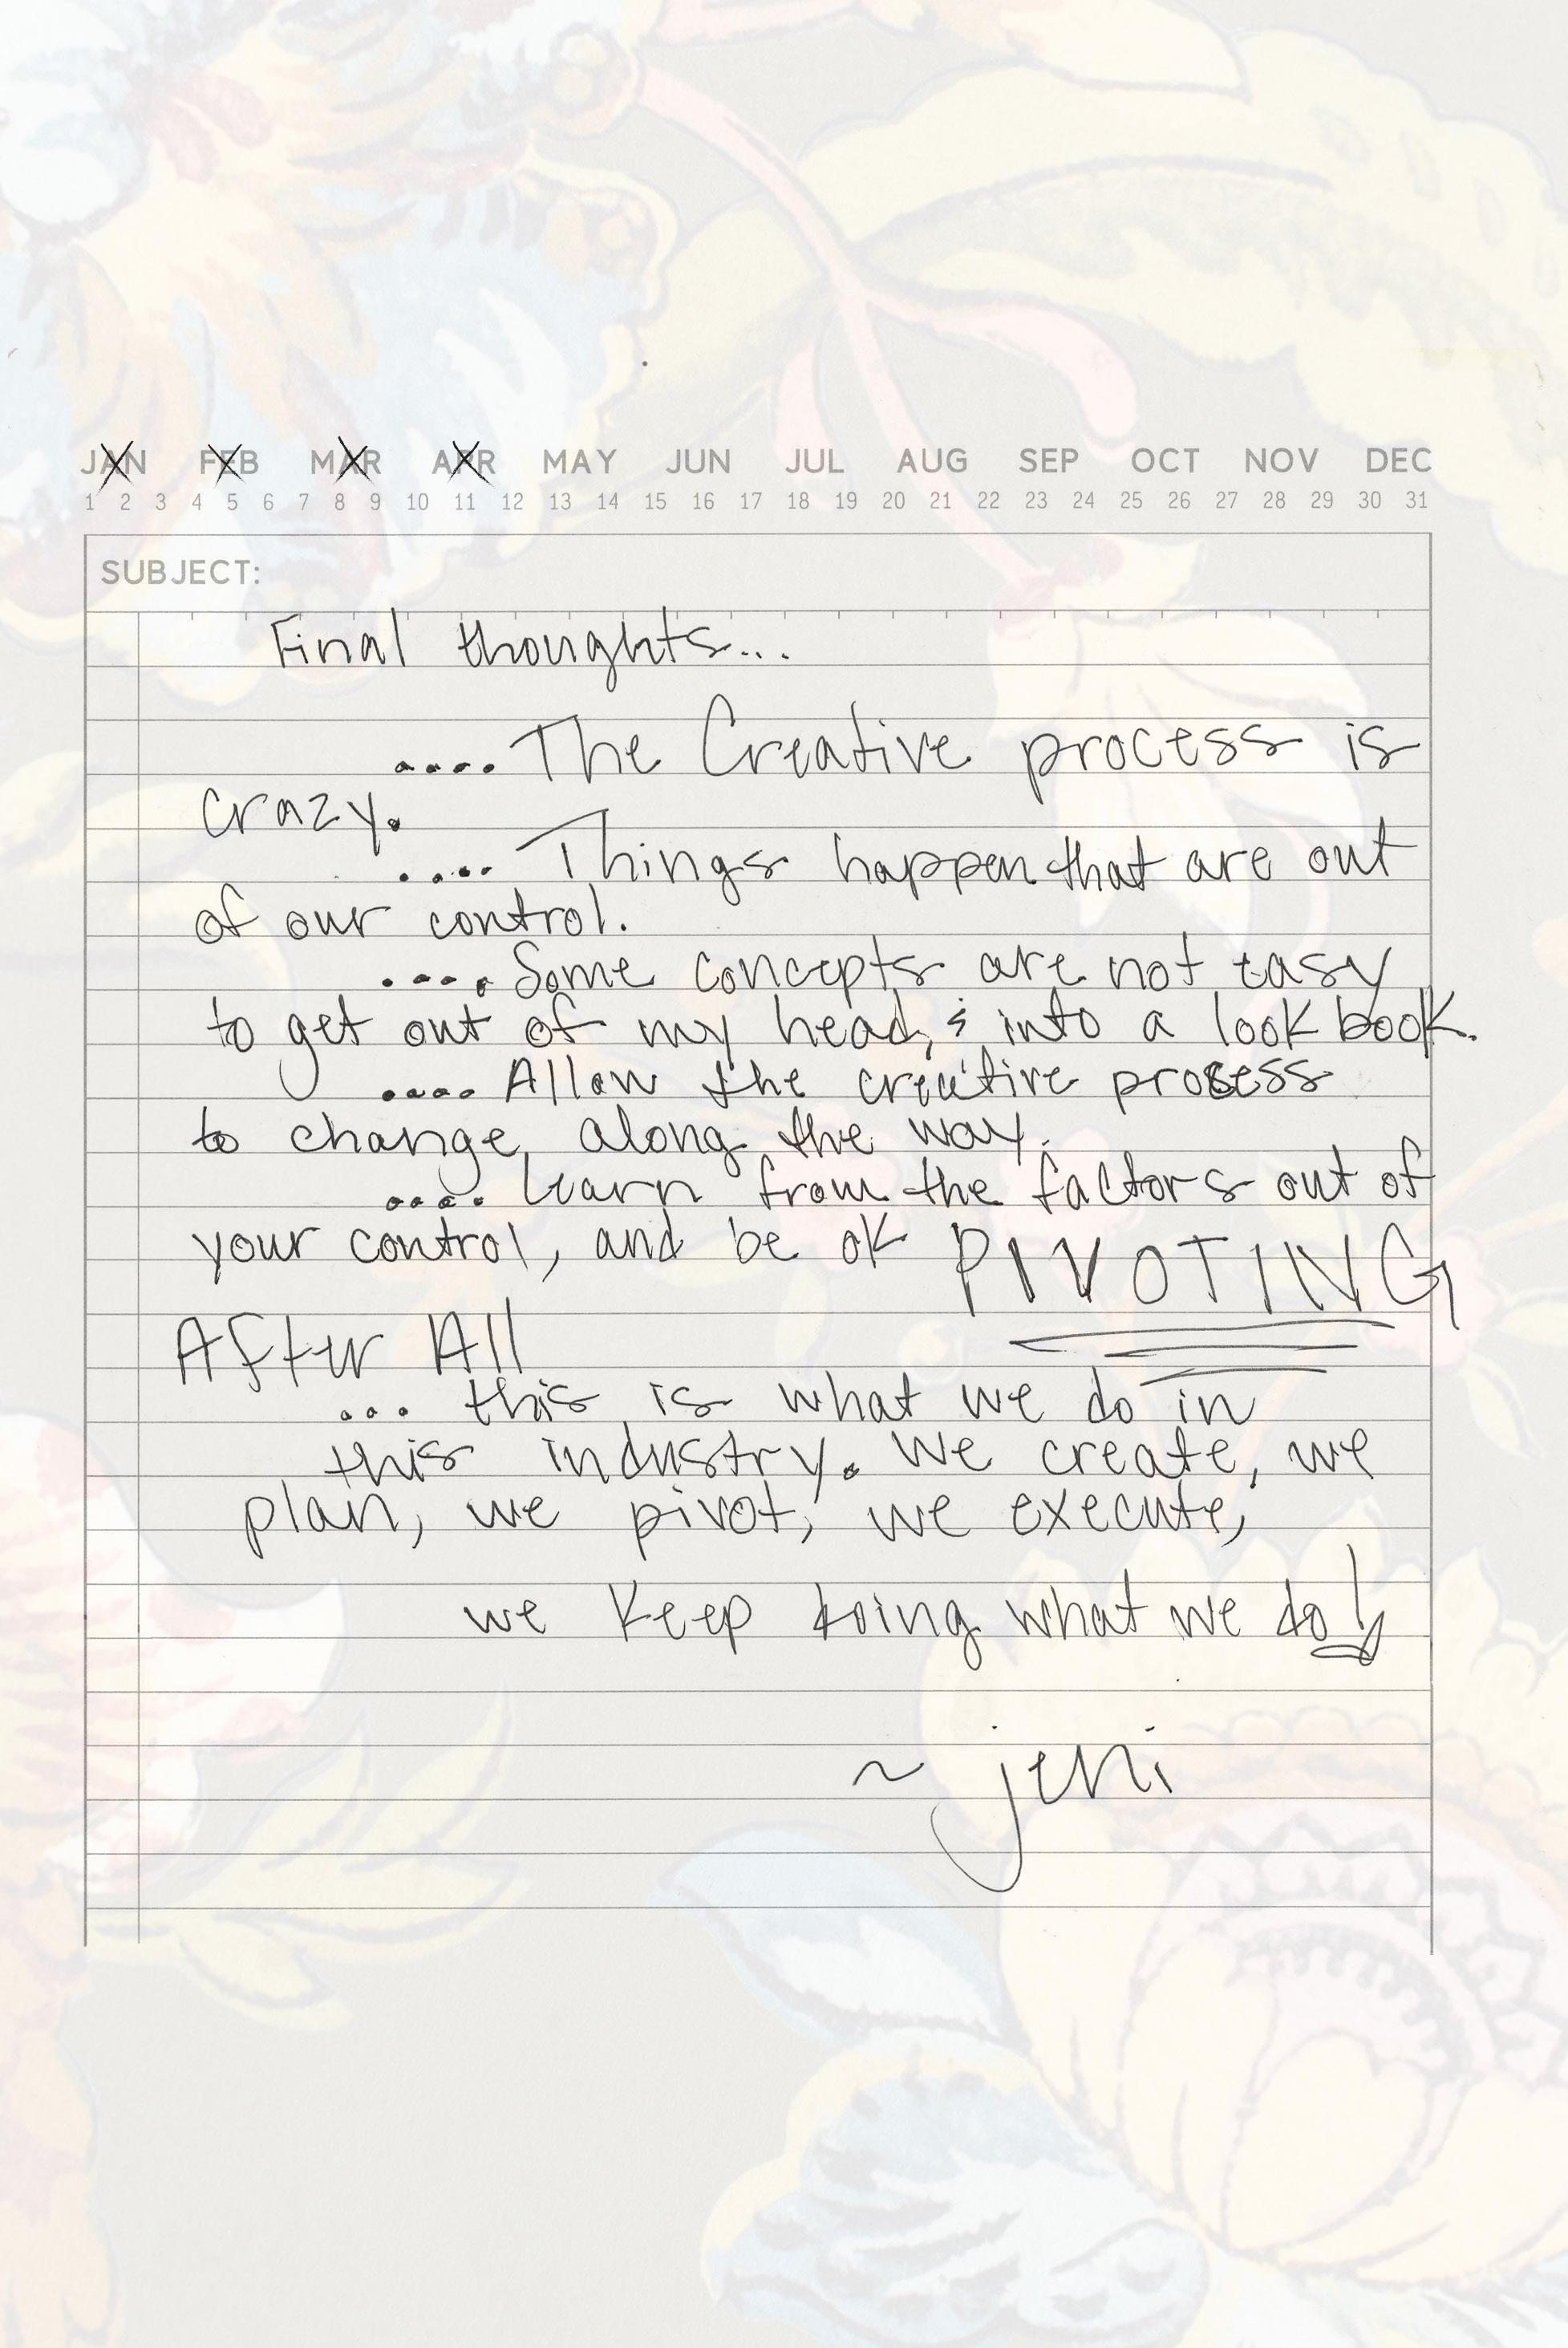 JAN FEB MAR APR MAY JUN JUL AUG SEP OCT NOV DEC
1 2 3 4 5 6 7 8 9 10 11 12 13 14 15 16 17 18 19 20 21 22 23 24 25 26 27 28 29 30 31
SUBJECT:
Final thoughts...
.... The Creative process is
crazy.
.... Things happen that are out
of our control.
.... Some concepts are not easy
to get out of my head, & into a look book.
.... Allow the creative process
to change along the way.
.... learn from the factors out of
your control, and be ok PIVOTING
After All
... this is what we do in
this industry. We create, we
plan, we pivot, we execute,
we keep doing what we do!
~ jeni